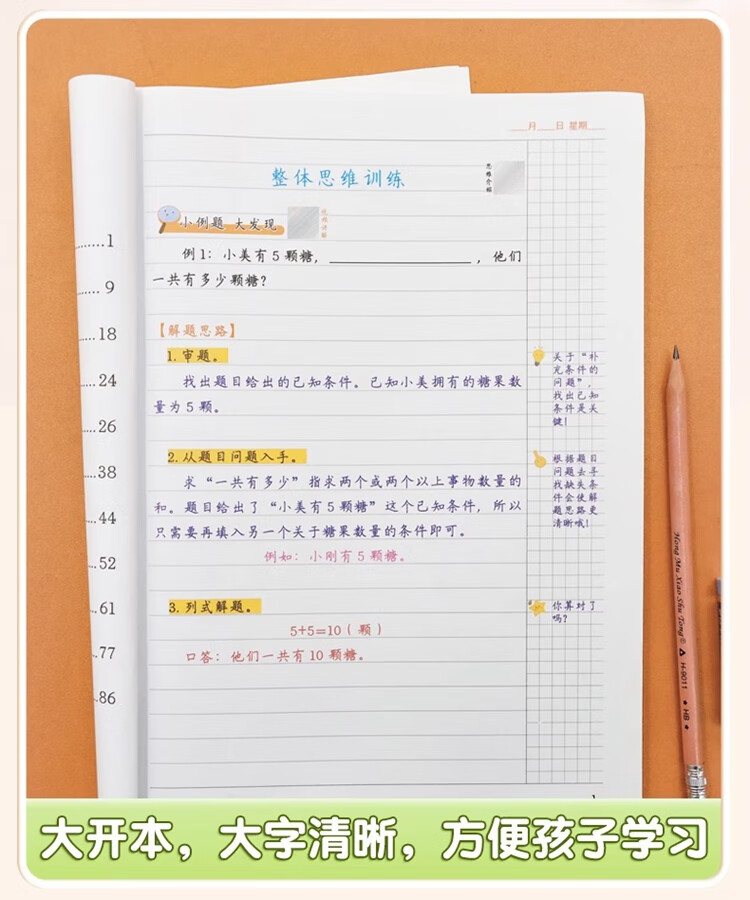 ____月____日 星期____
整体思维训练
思维介绍
小例题 大发现
例1：小美有5颗糖，____________________，他们
一共有多少颗糖？
【解题思路】
1.审题。
找出题目给出的已知条件。已知小美拥有的糖果数
量为5颗。
关于“补
充条件的
问题”，
找出已知
条件是关
键！
2.从题目问题入手。
求“一共有多少”指求两个或两个以上事物数量的
和。题目给出了“小美有5颗糖”这个已知条件，所以
只需要再填入另一个关于糖果数量的条件即可。
例如：小刚有5颗糖。
根据题目
问题去寻
找缺失条
件会使解
题思路更
清晰哦！
3.列式解题。
5+5=10（颗）
口答：他们一共有10颗糖。
你算对了
吗？
........1
.... 9
....18
....24
....26
....38
....44
...52
..61
..77
.86
Hong Mu Xiao Shu Tong® H-9011 ★ HB ★
大开本，大字清晰，方便孩子学习